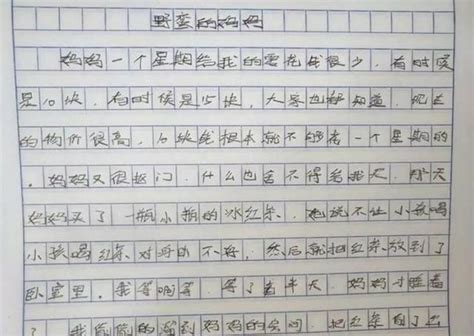 野蛮的妈妈
妈妈一个星期给我的零花钱很少,有时候
是10块,有时候是15块,大家也都知道,现在
的物价很高,10块钱根本就不够花一个星期的
。妈妈又很抠门,什么也舍不得给我买,那天
妈妈买了一瓶小瓶的冰红茶,她说不让小孩喝
小孩喝红茶对身体不好,然后就把红茶放到了
卧室里。我等啊等,等了老半天,妈妈才睡着
了,我偷偷的溜到妈妈的房间,把红茶